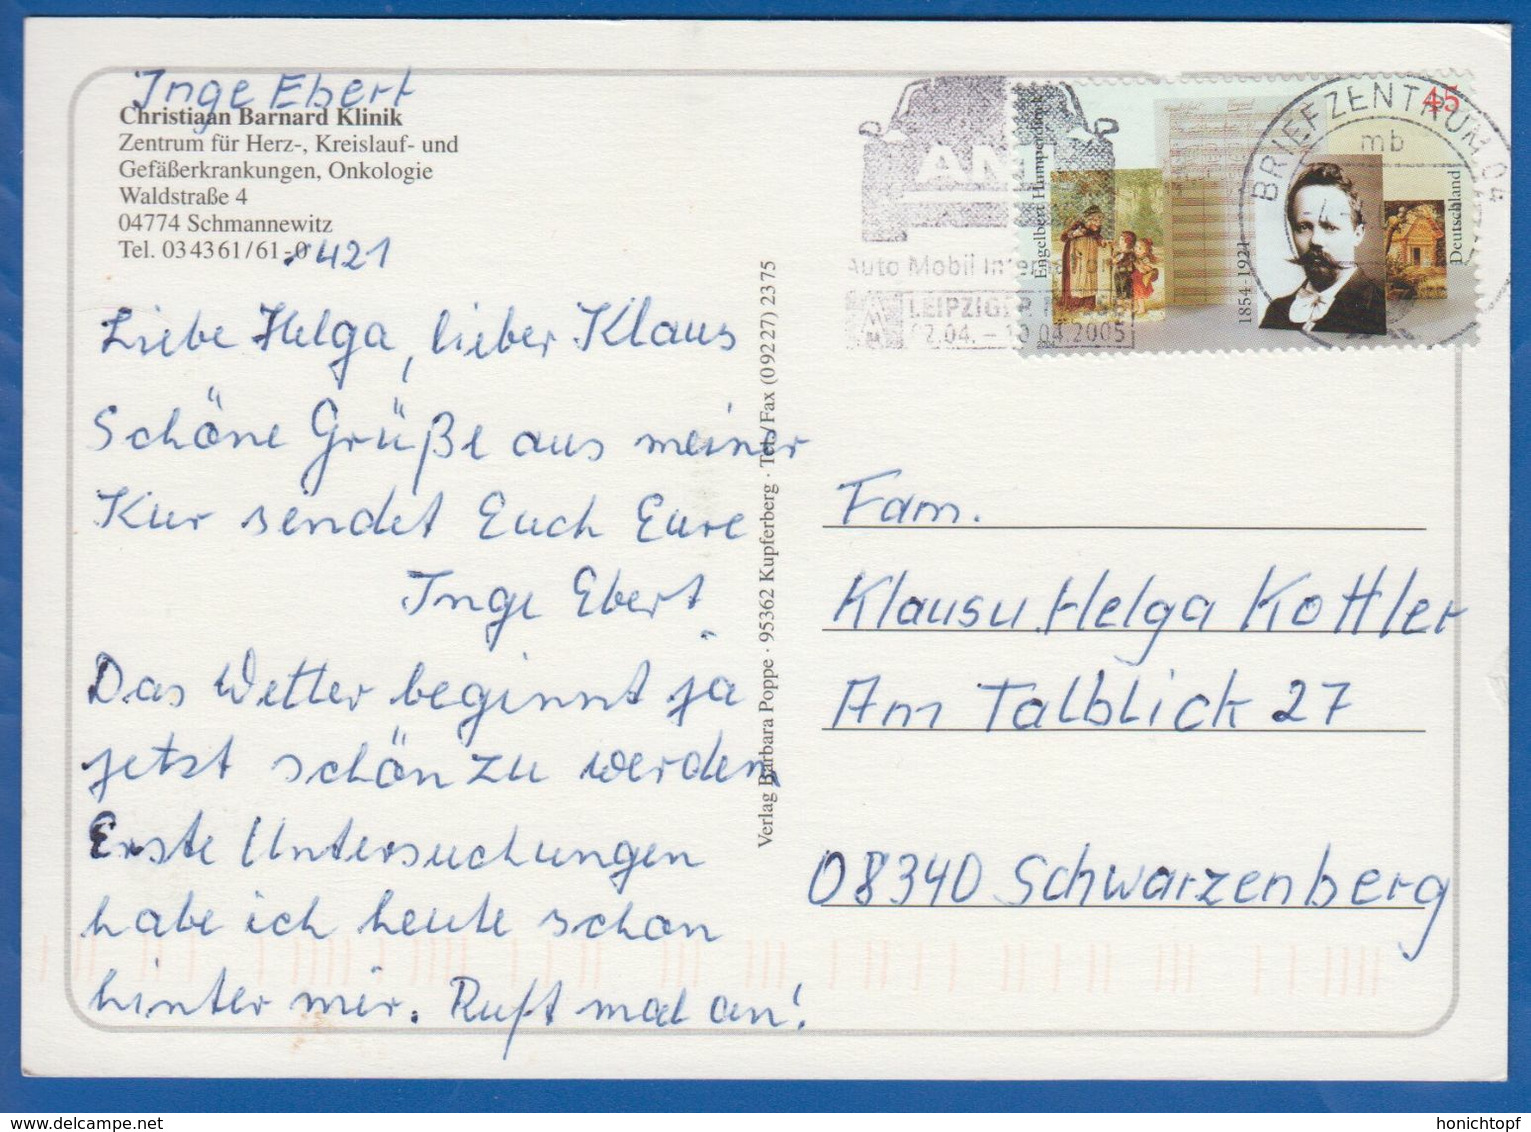 Inge Ebert
Christiaan Barnard Klinik
Zentrum für Herz-, Kreislauf- und
Gefäßerkrankungen, Onkologie
Waldstraße 4
04774 Schmannewitz
Tel. 034361/61-0 421
Liebe Helga, lieber Klaus
Schöne Grüße aus meiner
Kur sendet Euch Eure
Inge Ebert
Das Wetter beginnt ja
jetzt schön zu werden,
Erste Untersuchungen
habe ich heute schon
hinter mir. Ruft mal an!
Verlag Barbara Poppe · 95362 Kupferberg · Tel./Fax (09227) 2375
Auto Mobil International
LEIPZIGER MESSE
02.04. – 10.04.2005
Engelbert Humperdinck
1854-1921
45
Deutschland
BRIEFZENTRUM 04
mb
Fam.
Klaus u. Helga Kottler
Am Talblick 27
08340 Schwarzenberg
delcampe.net
honichtopf